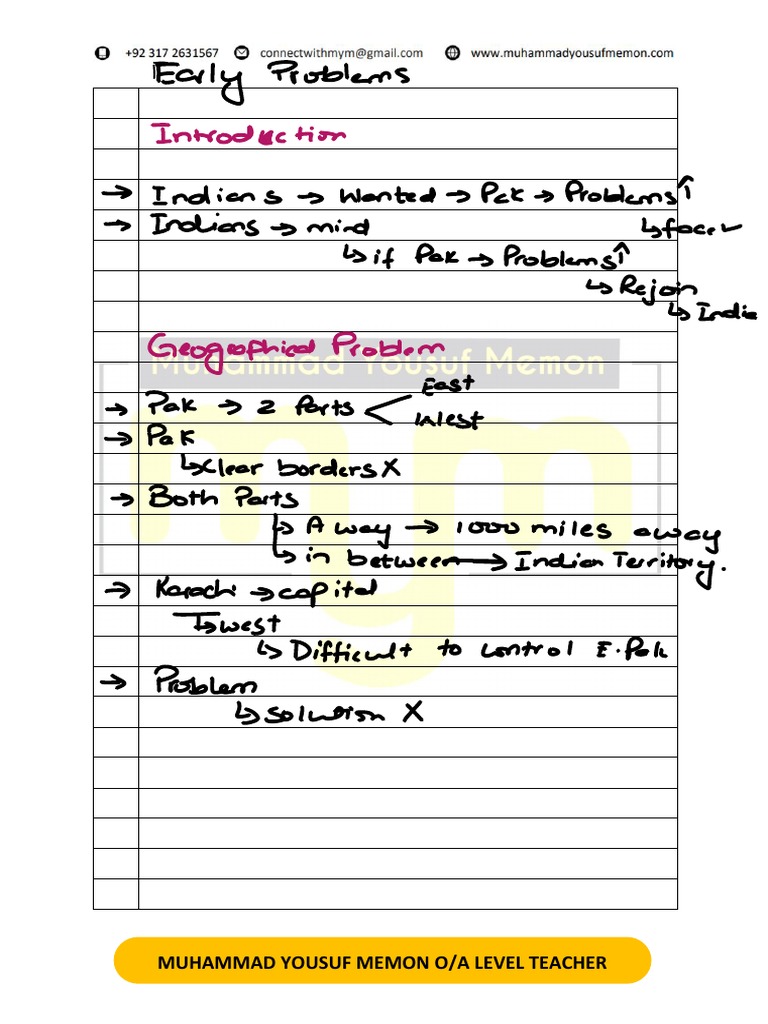 +92 317 2631567 connectwithmym@gmail.com www.muhammadyousufmemon.com
Early Problems
Introduction
→ Indians → Wanted → Pak → Problems↑
↳ face ✓
→ Indians → mind
↳ if Pak → Problems↑
↳ Rejoin
↳ India
Geographical Problem
Muhammad Yousuf Memon
mym
→ Pak → 2 Parts < East
West
→ Pak
↳ clear borders X
→ Both Parts
↳ Away → 1000 miles away
↳ in between → Indian Territory.
→ Karachi → capital
↳ west
↳ Difficult to control E.Pak
→ Problem
↳ Solution X
MUHAMMAD YOUSUF MEMON O/A LEVEL TEACHER